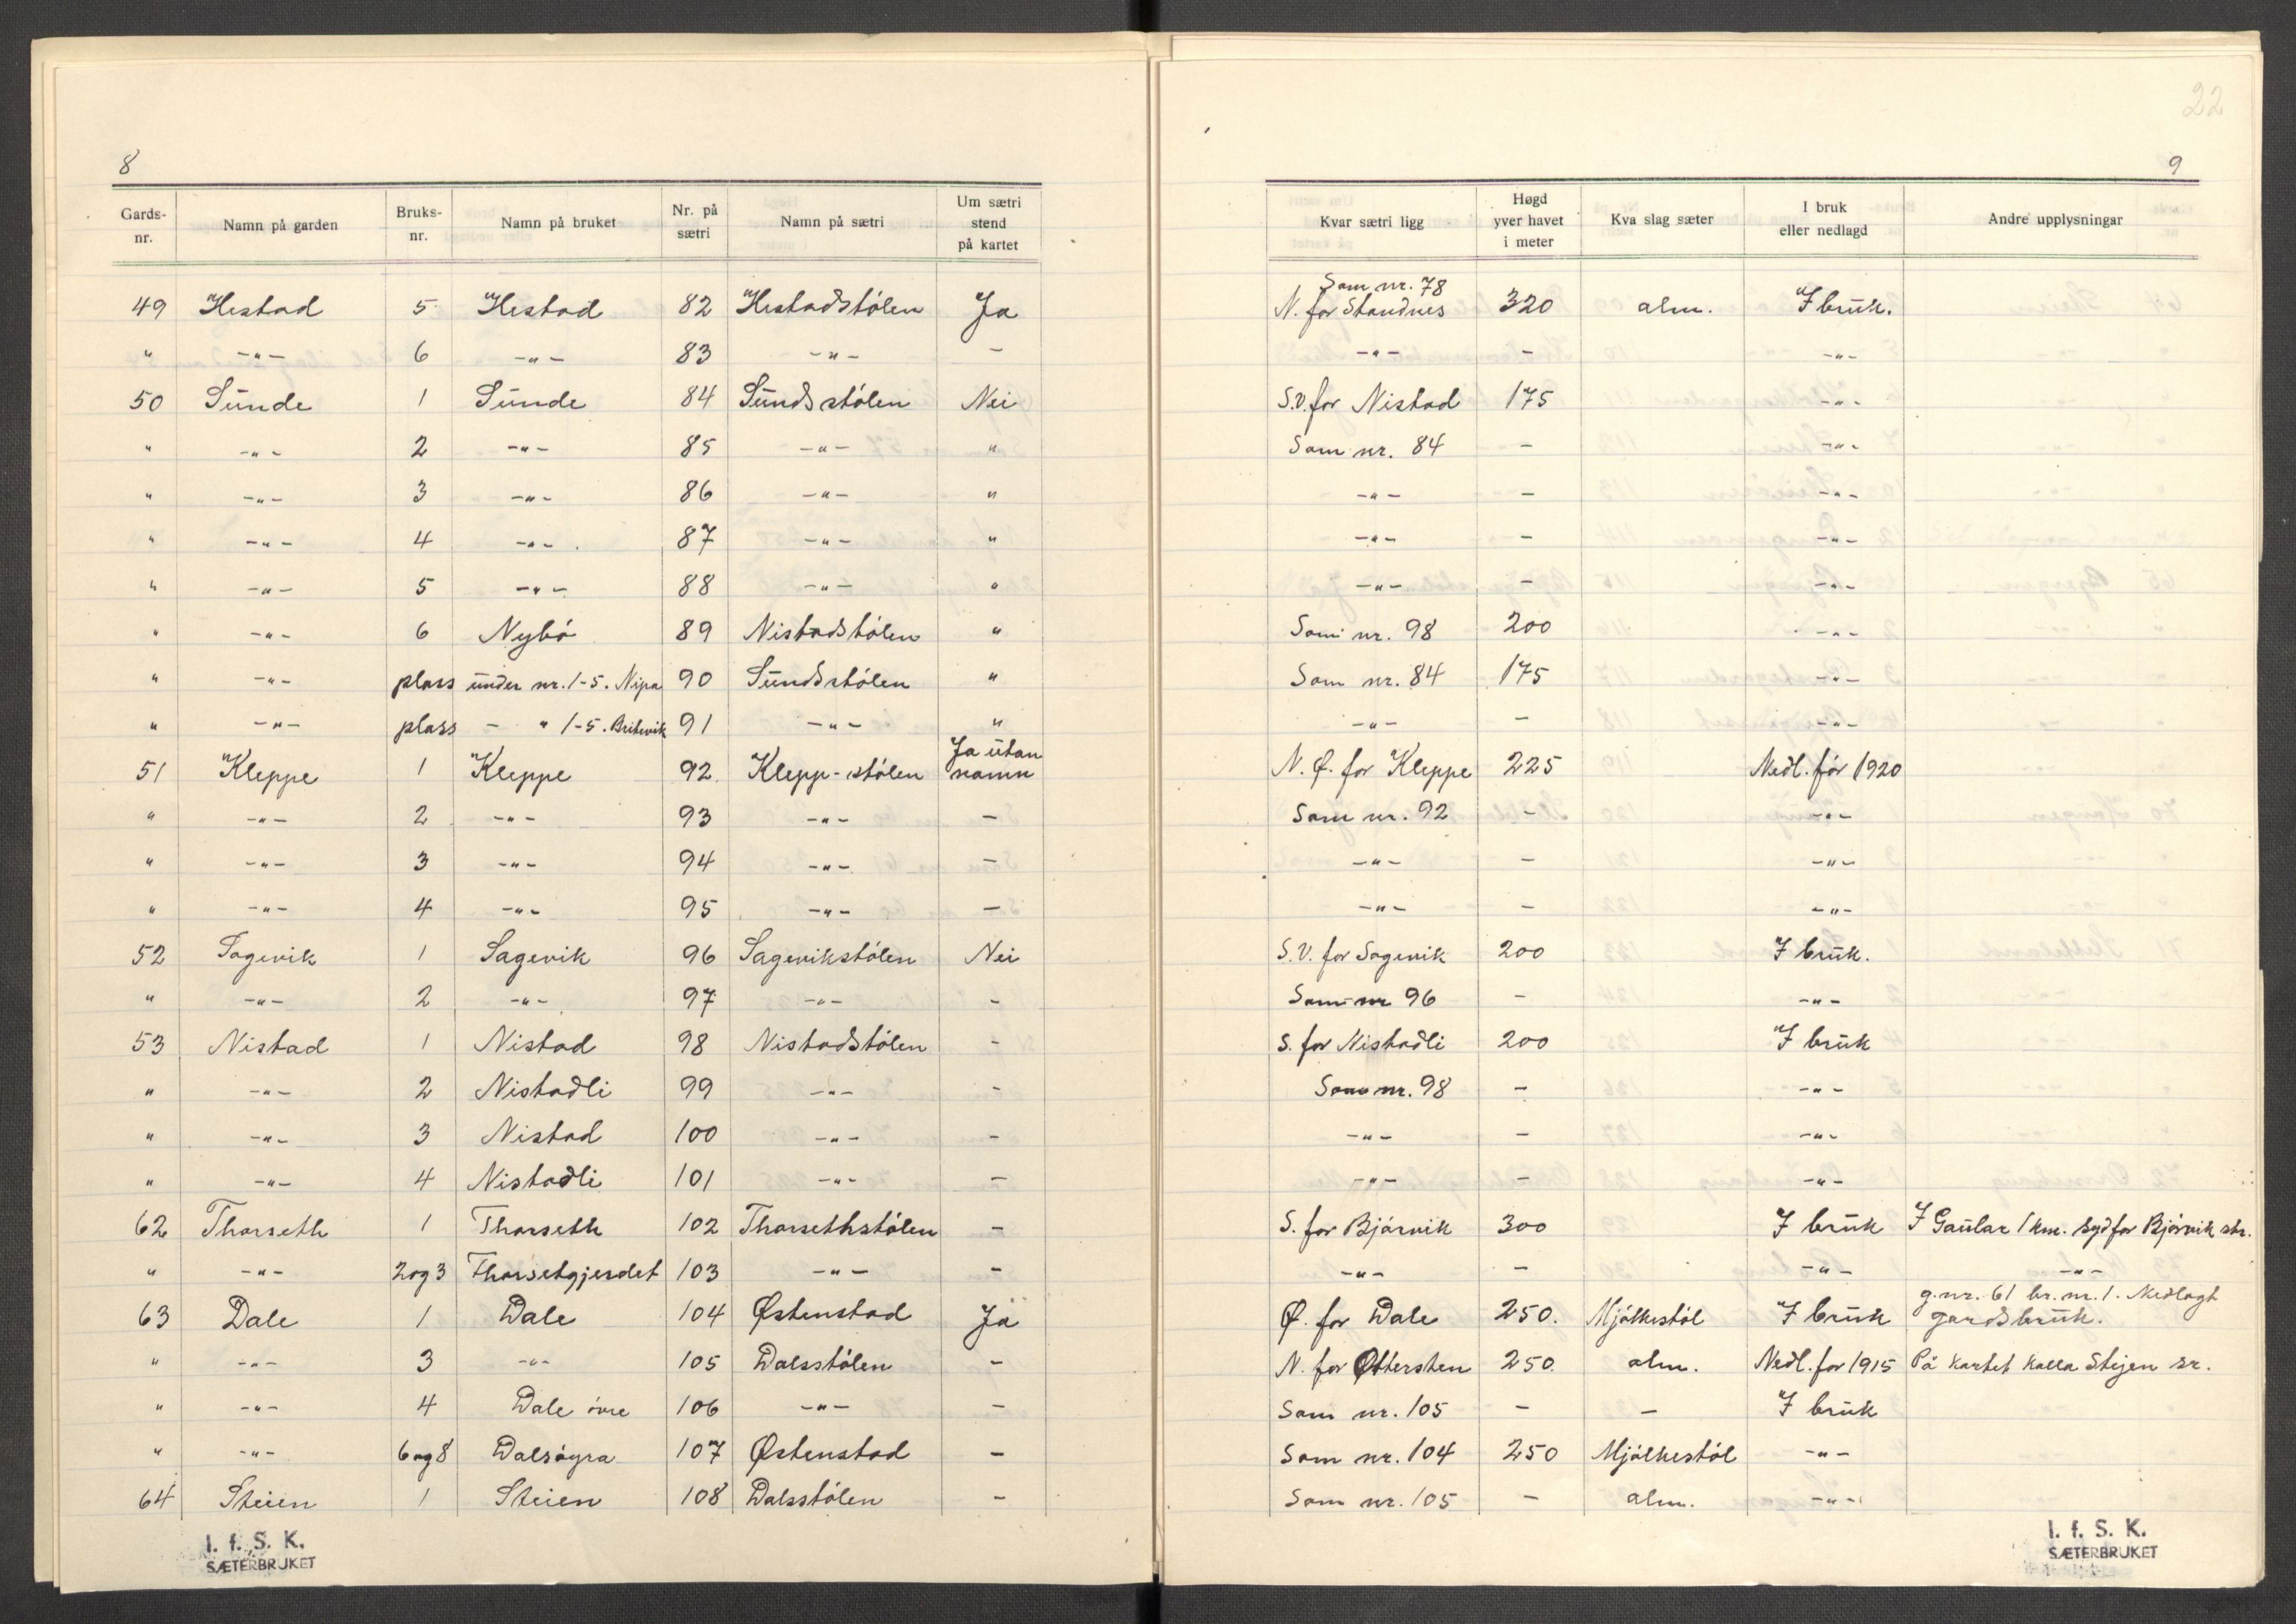 22
8
9
Gards-nr. | Namn på garden | Bruks-nr. | Namn på bruket | Nr. på sætri | Namn på sætri | Um sætri stend på kartet | Kvar sætri ligg | Høgd yver havet i meter | Kva slag sæter | I bruk eller nedlagd | Andre upplysningar
49 | Hestad | 5 | Hestad | 82 | Hestadstölen | Ja | Som nr. 78 N. for Standnes | 320 | alm. | I bruk.
" | -"- | 6 | -"- | 83 | -"- | - | -"- | - | | -"-
50 | Sunde | 1 | Sunde | 84 | Sundsstölen | Nei | S.V. for Nistad | 175 | | -"-
" | -"- | 2 | -"- | 85 | -"- | " | Som nr. 84 | - | | -"-
" | -"- | 3 | -"- | 86 | -"- | " | -"- | - | | -"-
" | -"- | 4 | -"- | 87 | -"- | " | -"- | - | | -"-
" | -"- | 5 | -"- | 88 | -"- | " | -"- | - | | -"-
" | -"- | 6 | Nybö | 89 | Nistadstölen | " | Som nr. 98 | 200 | | -"-
" | -"- | plass | under nr. 1-5. Nipa | 90 | Sundsstölen | " | Som nr. 84 | 175 | | -"-
" | -"- | plass | - " 1-5. Britevik | 91 | -"- | " | -"- | - | | -"-
51 | Kleppe | 1 | Kleppe | 92 | Klepp-stölen | Ja utan namn | N. Ø. for Kleppe | 225 | | Nedl. för 1920
" | -"- | 2 | -"- | 93 | -"- | - | Som nr. 92 | - | | -"-
" | -"- | 3 | -"- | 94 | -"- | - | -"- | - | | -"-
" | -"- | 4 | -"- | 95 | -"- | - | -"- | - | | -"-
52 | Sagevik | 1 | Sagevik | 96 | Sagevikstölen | Nei | S.V. for Sagevik | 200 | | I bruk.
" | -"- | 2 | -"- | 97 | -"- | - | Som nr 96 | - | | -"-
53 | Nistad | 1 | Nistad | 98 | Nistadstölen | - | S. for Nistadli | 200 | | I bruk
" | -"- | 2 | Nistadli | 99 | -"- | - | Som nr. 98 | - | | -"-
" | -"- | 3 | Nistad | 100 | -"- | - | -"- | - | | -"-
" | -"- | 4 | Nistadli | 101 | -"- | - | -"- | - | | -"-
62 | Thorseth | 1 | Thorseth | 102 | Thorsethstölen | - | S. for Bjórvik | 300 | | I bruk | I Gaular 1 km. syd for Bjórvik str.
" | -"- | 2 og 3 | Thorsetgjerdet | 103 | -"- | - | -"- | - | | -"- | -"-
63 | Dale | 1 | Dale | 104 | Østenstad | Ja | Ø. for Dale | 250. | Mjólkestöl | I bruk | g.nr. 61 br.nr. 1. Nedlagt gardsbruk.
" | -"- | 3 | -"- | 105 | Dalsstölen | - | N. for Ottersten | 250 | alm. | Nedl. for 1915 | På kartet kalla Stejen sr.
" | -"- | 4 | Dale övre | 106 | -"- | - | Som nr. 105 | - | - | I bruk
" | -"- | 6 og 8 | Dalsöyra | 107 | Østenstad | - | Som nr. 104 | 250 | Mjólkestöl | -"-
64 | Steien | 1 | Steien | 108 | Dalsstölen | - | Som nr. 105 | - | alm. | -"-
I. f. S. K.
SÆTERBRUKET
I. f. S. K.
SÆTERBRUKET